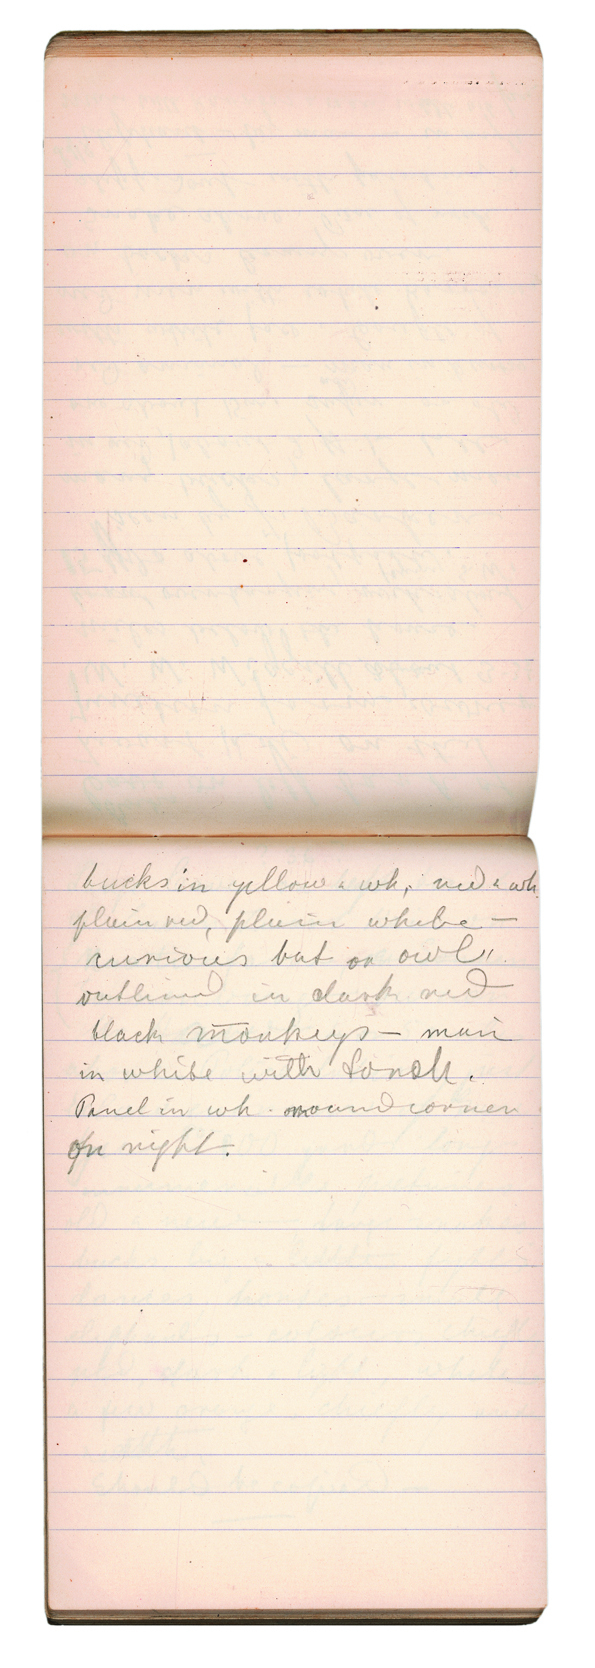 bucks in yellow & wh, red & wh
plain red, plain white —
curious bat or owl,
outlined in dark red
black monkeys — man
in white with torch.
Panel in wh. round corner
on right.